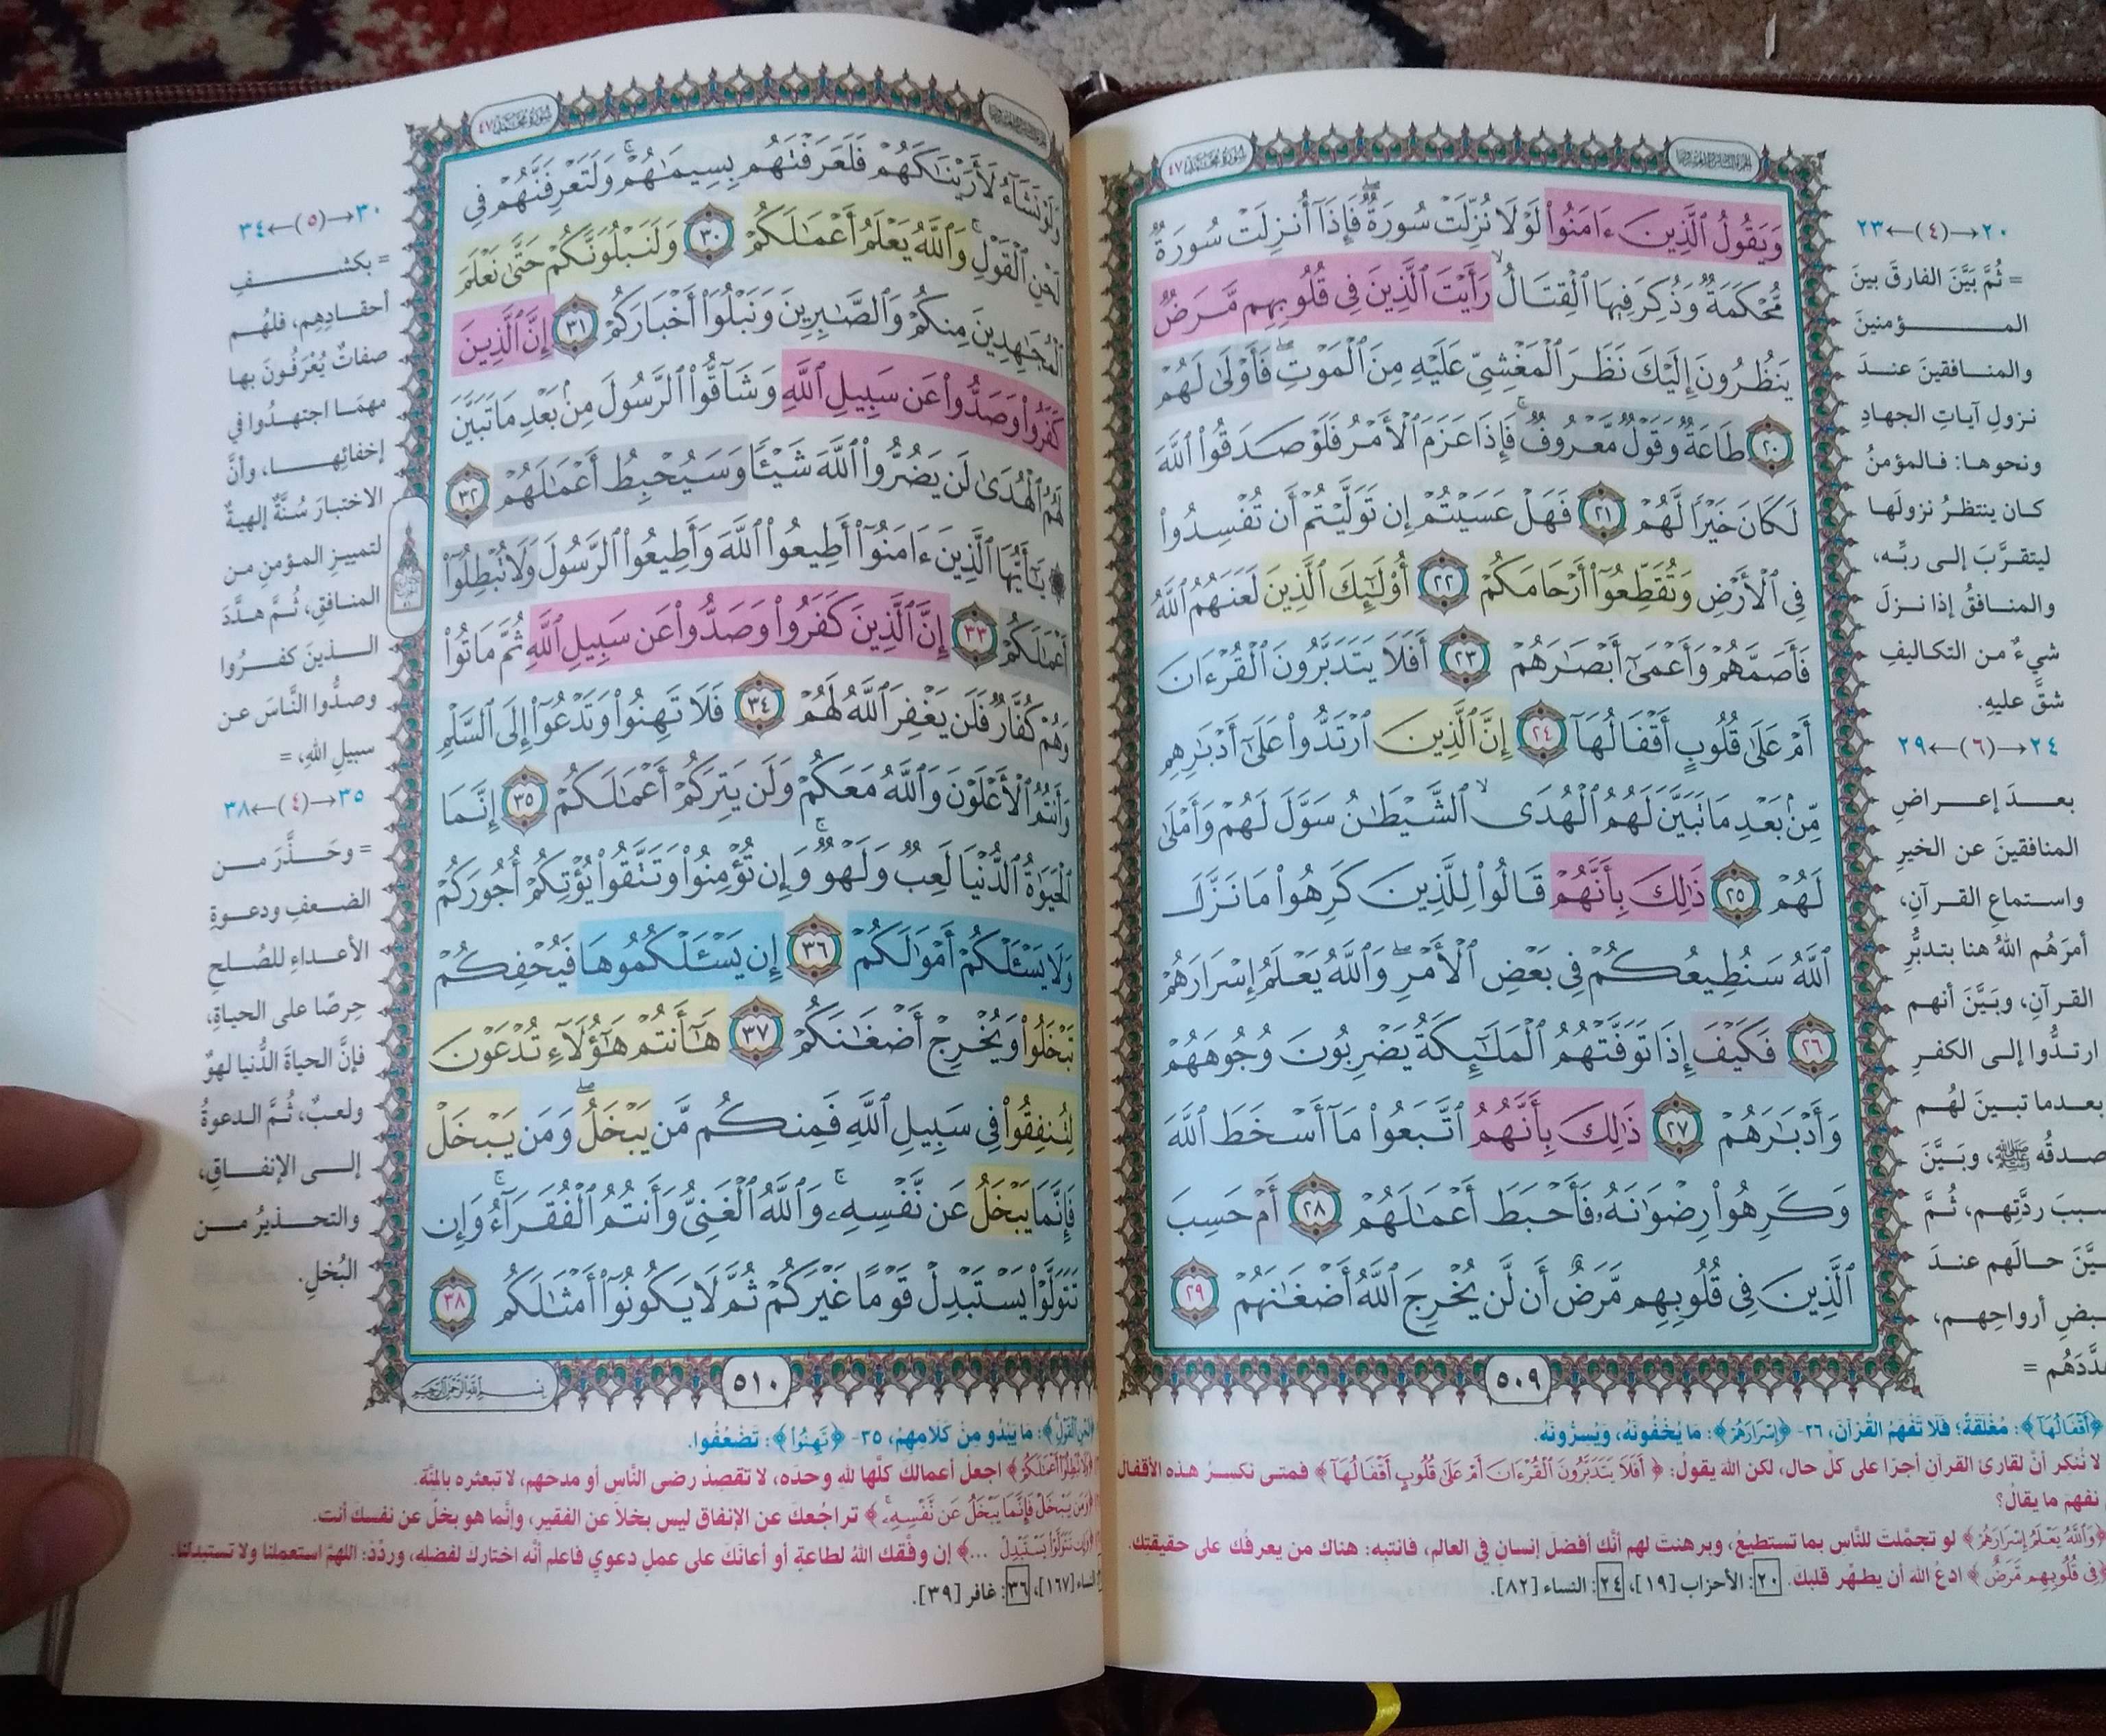 سُورَةُ مُحَمَّدٍ ٤٧
وَيَقُولُ ٱلَّذِينَ ءَامَنُوا۟ لَوْلَا نُزِّلَتْ سُورَةٌ ۖ فَإِذَآ أُنزِلَتْ سُورَةٌ
مُّحْكَمَةٌ وَذُكِرَ فِيهَا ٱلْقِتَالُ ۙ رَأَيْتَ ٱلَّذِينَ فِى قُلُوبِهِم مَّرَضٌ
يَنظُرُونَ إِلَيْكَ نَظَرَ ٱلْمَغْشِىِّ عَلَيْهِ مِنَ ٱلْمَوْتِ ۖ فَأَوْلَىٰ لَهُمْ
٢٠ طَاعَةٌ وَقَوْلٌ مَّعْرُوفٌ ۚ فَإِذَا عَزَمَ ٱلْأَمْرُ فَلَوْ صَدَقُوا۟ ٱللَّهَ
لَكَانَ خَيْرًا لَّهُمْ ٢١ فَهَلْ عَسَيْتُمْ إِن تَوَلَّيْتُمْ أَن تُفْسِدُوا۟
فِى ٱلْأَرْضِ وَتُقَطِّعُوٓا۟ أَرْحَامَكُمْ ٢٢ أُو۟لَـٰٓئِكَ ٱلَّذِينَ لَعَنَهُمُ ٱللَّهُ
فَأَصَمَّهُمْ وَأَعْمَىٰٓ أَبْصَـٰرَهُمْ ٢٣ أَفَلَا يَتَدَبَّرُونَ ٱلْقُرْءَانَ
أَمْ عَلَىٰ قُلُوبٍ أَقْفَالُهَآ ٢٤ إِنَّ ٱلَّذِينَ ٱرْتَدُّوا۟ عَلَىٰٓ أَدْبَـٰرِهِم
مِّنۢ بَعْدِ مَا تَبَيَّنَ لَهُمُ ٱلْهُدَى ۙ ٱلشَّيْطَـٰنُ سَوَّلَ لَهُمْ وَأَمْلَىٰ
لَهُمْ ٢٥ ذَٰلِكَ بِأَنَّهُمْ قَالُوا۟ لِلَّذِينَ كَرِهُوا۟ مَا نَزَّلَ
ٱللَّهُ سَنُطِيعُكُمْ فِى بَعْضِ ٱلْأَمْرِ ۖ وَٱللَّهُ يَعْلَمُ إِسْرَارَهُمْ
٢٦ فَكَيْفَ إِذَا تَوَفَّتْهُمُ ٱلْمَلَـٰٓئِكَةُ يَضْرِبُونَ وُجُوهَهُمْ
وَأَدْبَـٰرَهُمْ ٢٧ ذَٰلِكَ بِأَنَّهُمُ ٱتَّبَعُوا۟ مَآ أَسْخَطَ ٱللَّهَ
وَكَرِهُوا۟ رِضْوَٰنَهُۥ فَأَحْبَطَ أَعْمَـٰلَهُمْ ٢٨ أَمْ حَسِبَ
ٱلَّذِينَ فِى قُلُوبِهِم مَّرَضٌ أَن لَّن يُخْرِجَ ٱللَّهُ أَضْغَـٰنَهُمْ ٢٩
٥٠٩
٢٠→(٤)←٢٣
= ثُمَّ بَيَّنَ الفارقَ بينَ
المؤمنينَ
والمنافقينَ عندَ
نزولِ آياتِ الجهادِ
ونحوها: فالمؤمنُ
كان ينتظرُ نزولَها
ليتقرَّبَ إلى ربِّه،
والمنافقُ إذا نزلَ
شيءٌ من التكاليفِ
شقَّ عليهِ.
٢٤→(٦)←٢٩
بعدَ إعراضِ
المنافقينَ عن الخيرِ
واستماعِ القرآنِ،
أمرَهُم اللهُ هنا بتدبُّرِ
القرآنِ، وبَيَّنَ أنهم
ارتدُّوا إلى الكفرِ
بعدما تبينَ لهُم
صدقُه ﷺ، وبَيَّنَ
سببَ ردَّتِهم، ثُمَّ
بيَّنَ حالَهم عندَ
قبضِ أرواحِهم،
هدَّدَهُم =
﴿أَقْفَالُهَا﴾: مُغْلَقَةٌ؛ فَلَا تَفْهَمُ القُرْآنَ، ٢٦- ﴿إِسْرَارَهُمْ﴾: مَا يُخْفُونَهُ، وَيُسِرُّونَهُ.
لا نُنكر أنَّ لقارئ القرآنِ أجرًا على كلِّ حال، لكن الله يقولُ: ﴿أَفَلَا يَتَدَبَّرُونَ الْقُرْءَانَ أَمْ عَلَىٰ قُلُوبٍ أَقْفَالُهَآ﴾ فمتى نكسرُ هذه الأقفال
نفهمَ ما يقالُ؟
﴿وَاللَّهُ يَعْلَمُ إِسْرَارَهُمْ﴾ لو تجمَّلتَ للنَّاسِ بما تستطيعُ، وبرهنتَ لهم أنَّك أفضلَ إنسانٍ في العالمِ، فانتبِه: هناك من يعرفُك على حقيقتِك.
﴿فِي قُلُوبِهِم مَّرَضٌ﴾ ادعُ اللهَ أن يطهِّر قلبكَ. ٢٠: الأحزاب [١٩]، ٢٤: النساء [٨٢].
سُورَةُ مُحَمَّدٍ ٤٧
وَلَوْ نَشَآءُ لَأَرَيْنَـٰكَهُمْ فَلَعَرَفْتَهُم بِسِيمَـٰهُمْ ۚ وَلَتَعْرِفَنَّهُمْ فِى
لَحْنِ ٱلْقَوْلِ ۚ وَٱللَّهُ يَعْلَمُ أَعْمَـٰلَكُمْ ٣٠ وَلَنَبْلُوَنَّكُمْ حَتَّىٰ نَعْلَمَ
ٱلْمُجَـٰهِدِينَ مِنكُمْ وَٱلصَّـٰبِرِينَ وَنَبْلُوَا۟ أَخْبَارَكُمْ ٣١ إِنَّ ٱلَّذِينَ
كَفَرُوا۟ وَصَدُّوا۟ عَن سَبِيلِ ٱللَّهِ وَشَآقُّوا۟ ٱلرَّسُولَ مِنۢ بَعْدِ مَا تَبَيَّنَ
لَهُمُ ٱلْهُدَىٰ لَن يَضُرُّوا۟ ٱللَّهَ شَيْـًٔا وَسَيُحْبِطُ أَعْمَـٰلَهُمْ ٣٢
۞ يَـٰٓأَيُّهَا ٱلَّذِينَ ءَامَنُوٓا۟ أَطِيعُوا۟ ٱللَّهَ وَأَطِيعُوا۟ ٱلرَّسُولَ وَلَا تُبْطِلُوٓا۟
أَعْمَـٰلَكُمْ ٣٣ إِنَّ ٱلَّذِينَ كَفَرُوا۟ وَصَدُّوا۟ عَن سَبِيلِ ٱللَّهِ ثُمَّ مَاتُوا۟
وَهُمْ كُفَّارٌ فَلَن يَغْفِرَ ٱللَّهُ لَهُمْ ٣٤ فَلَا تَهِنُوا۟ وَتَدْعُوٓا۟ إِلَى ٱلسَّلْمِ
وَأَنتُمُ ٱلْأَعْلَوْنَ وَٱللَّهُ مَعَكُمْ وَلَن يَتِرَكُمْ أَعْمَـٰلَكُمْ ٣٥ إِنَّمَا
ٱلْحَيَوٰةُ ٱلدُّنْيَا لَعِبٌ وَلَهْوٌ ۚ وَإِن تُؤْمِنُوا۟ وَتَتَّقُوا۟ يُؤْتِكُمْ أُجُورَكُمْ
وَلَا يَسْـَٔلْكُمْ أَمْوَٰلَكُمْ ٣٦ إِن يَسْـَٔلْكُمُوهَا فَيُحْفِكُمْ
تَبْخَلُوا۟ وَيُخْرِجْ أَضْغَـٰنَكُمْ ٣٧ هَـٰٓأَنتُمْ هَـٰٓؤُلَآءِ تُدْعَوْنَ
لِتُنفِقُوا۟ فِى سَبِيلِ ٱللَّهِ فَمِنكُم مَّن يَبْخَلُ ۖ وَمَن يَبْخَلْ
فَإِنَّمَا يَبْخَلُ عَن نَّفْسِهِۦ ۚ وَٱللَّهُ ٱلْغَنِىُّ وَأَنتُمُ ٱلْفُقَرَآءُ ۚ وَإِن
تَتَوَلَّوْا۟ يَسْتَبْدِلْ قَوْمًا غَيْرَكُمْ ثُمَّ لَا يَكُونُوٓا۟ أَمْثَـٰلَكُم ٣٨
٥١٠
بِسْمِ اللَّهِ الرَّحْمَٰنِ الرَّحِيمِ
٣٠→(٥)←٣٤
= بكشفِ
أحقادِهِم، فلهُم
صفاتٌ يُعْرَفُونَ بها
مهمَا اجتهدُوا في
إخفائِها، وأنَّ
الاختبارَ سُنَّةٌ إلهيةٌ
لتمييزِ المؤمنِ من
المنافقِ، ثُمَّ هدَّدَ
الذينَ كفرُوا
وصدُّوا النَّاسَ عن
سبيلِ اللهِ، =
٣٥→(٤)←٣٨
= وحَذَّرَ من
الضعفِ ودعوةِ
الأعداءِ للصُلحِ
حِرصًا على الحياةِ،
فإنَّ الحياةَ الدُّنيا لهوٌ
ولعبٌ، ثُمَّ الدعوةُ
إلى الإنفاقِ،
والتحذيرُ من
البُخلِ.
﴿لَحْنِ الْقَوْلِ﴾: مَا يَبْدُو مِنْ كَلَامِهِمْ، ٣٥- ﴿تَهِنُوا﴾: تَضْعُفُوا.
﴿وَلَا تُبْطِلُوا أَعْمَالَكُمْ﴾ اجعلْ أعمالكَ كلَّها للهِ وحدَه، لا تقصدْ رضى النَّاسِ أو مدحَهم، لا تبعثره بالمِنَّة.
﴿وَمَن يَبْخَلْ فَإِنَّمَا يَبْخَلُ عَن نَّفْسِهِ﴾ تراجُعكَ عن الإنفاقِ ليس بخلًا عن الفقيرِ، وإنَّما هو بخلٌ عن نفسكَ أنت.
﴿وَإِن تَتَوَلَّوْا يَسْتَبْدِلْ ...﴾ إن وفَّقك اللهُ لطاعةٍ أو أعانَكَ على عملٍ دعويٍ فاعلم أنَّه اختاركَ لفضلِه، وردِّدْ: اللهمَّ استعملنا ولا تستبدلنا.
النساء [١٦٧]، ٣٦: غافر [٣٩].